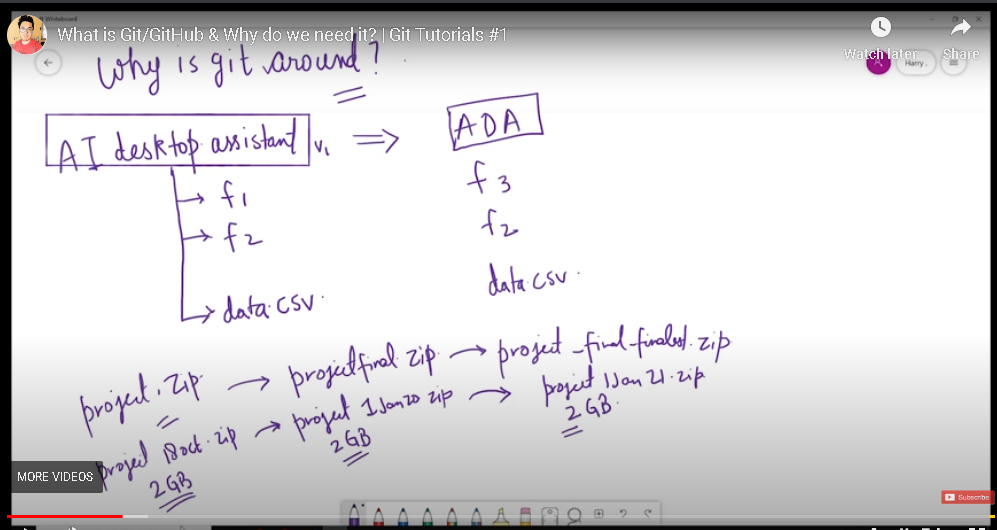 Whiteboard
What is Git/GitHub & Why do we need it? | Git Tutorials #1
Watch later
Share
Harry .
Why is git around?
AI desktop assistant v1 ⇒ ADA
f1
f2
data.csv
f3
f2
data.csv
project.zip → projectfinal.zip → project_final_finalest.zip
project 18oct.zip → project 1Jan20 zip → project 1Jan21.zip
2GB
2GB
2GB
MORE VIDEOS
Subscribe